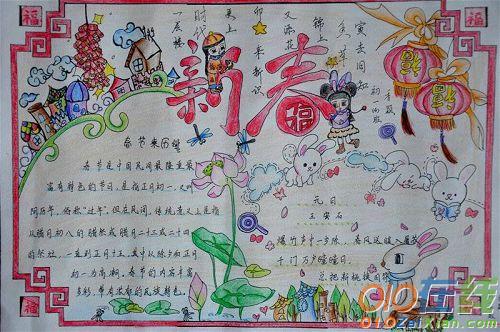 福
福
福
新春
福
福
福
时代
更上
一层楼
又添花
锦上
辞旧
春节来历
春节是中国民间最隆重最
富有特色的节日，是指正月初一，又叫
阴历年，俗称“过年”。但在民间，传统意义上是指
从腊月初八的腊祭或腊月二十三或二十四
的祭灶，一直到正月十五，其中以除夕和正月
初一为高潮。春节的内容丰富
多彩，带有浓郁的民族特色。
元日
王安石
爆竹声中一岁除，春风送暖入屠苏
千门万户曈曈日，
总把新桃换旧符
910在线
910zaixian.com